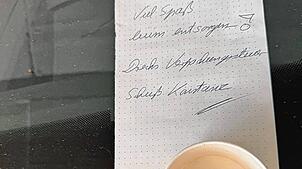 Viel Spaß
beim entsorgen !
Drecks Verpackungssteuer
Scheiß Konstanz